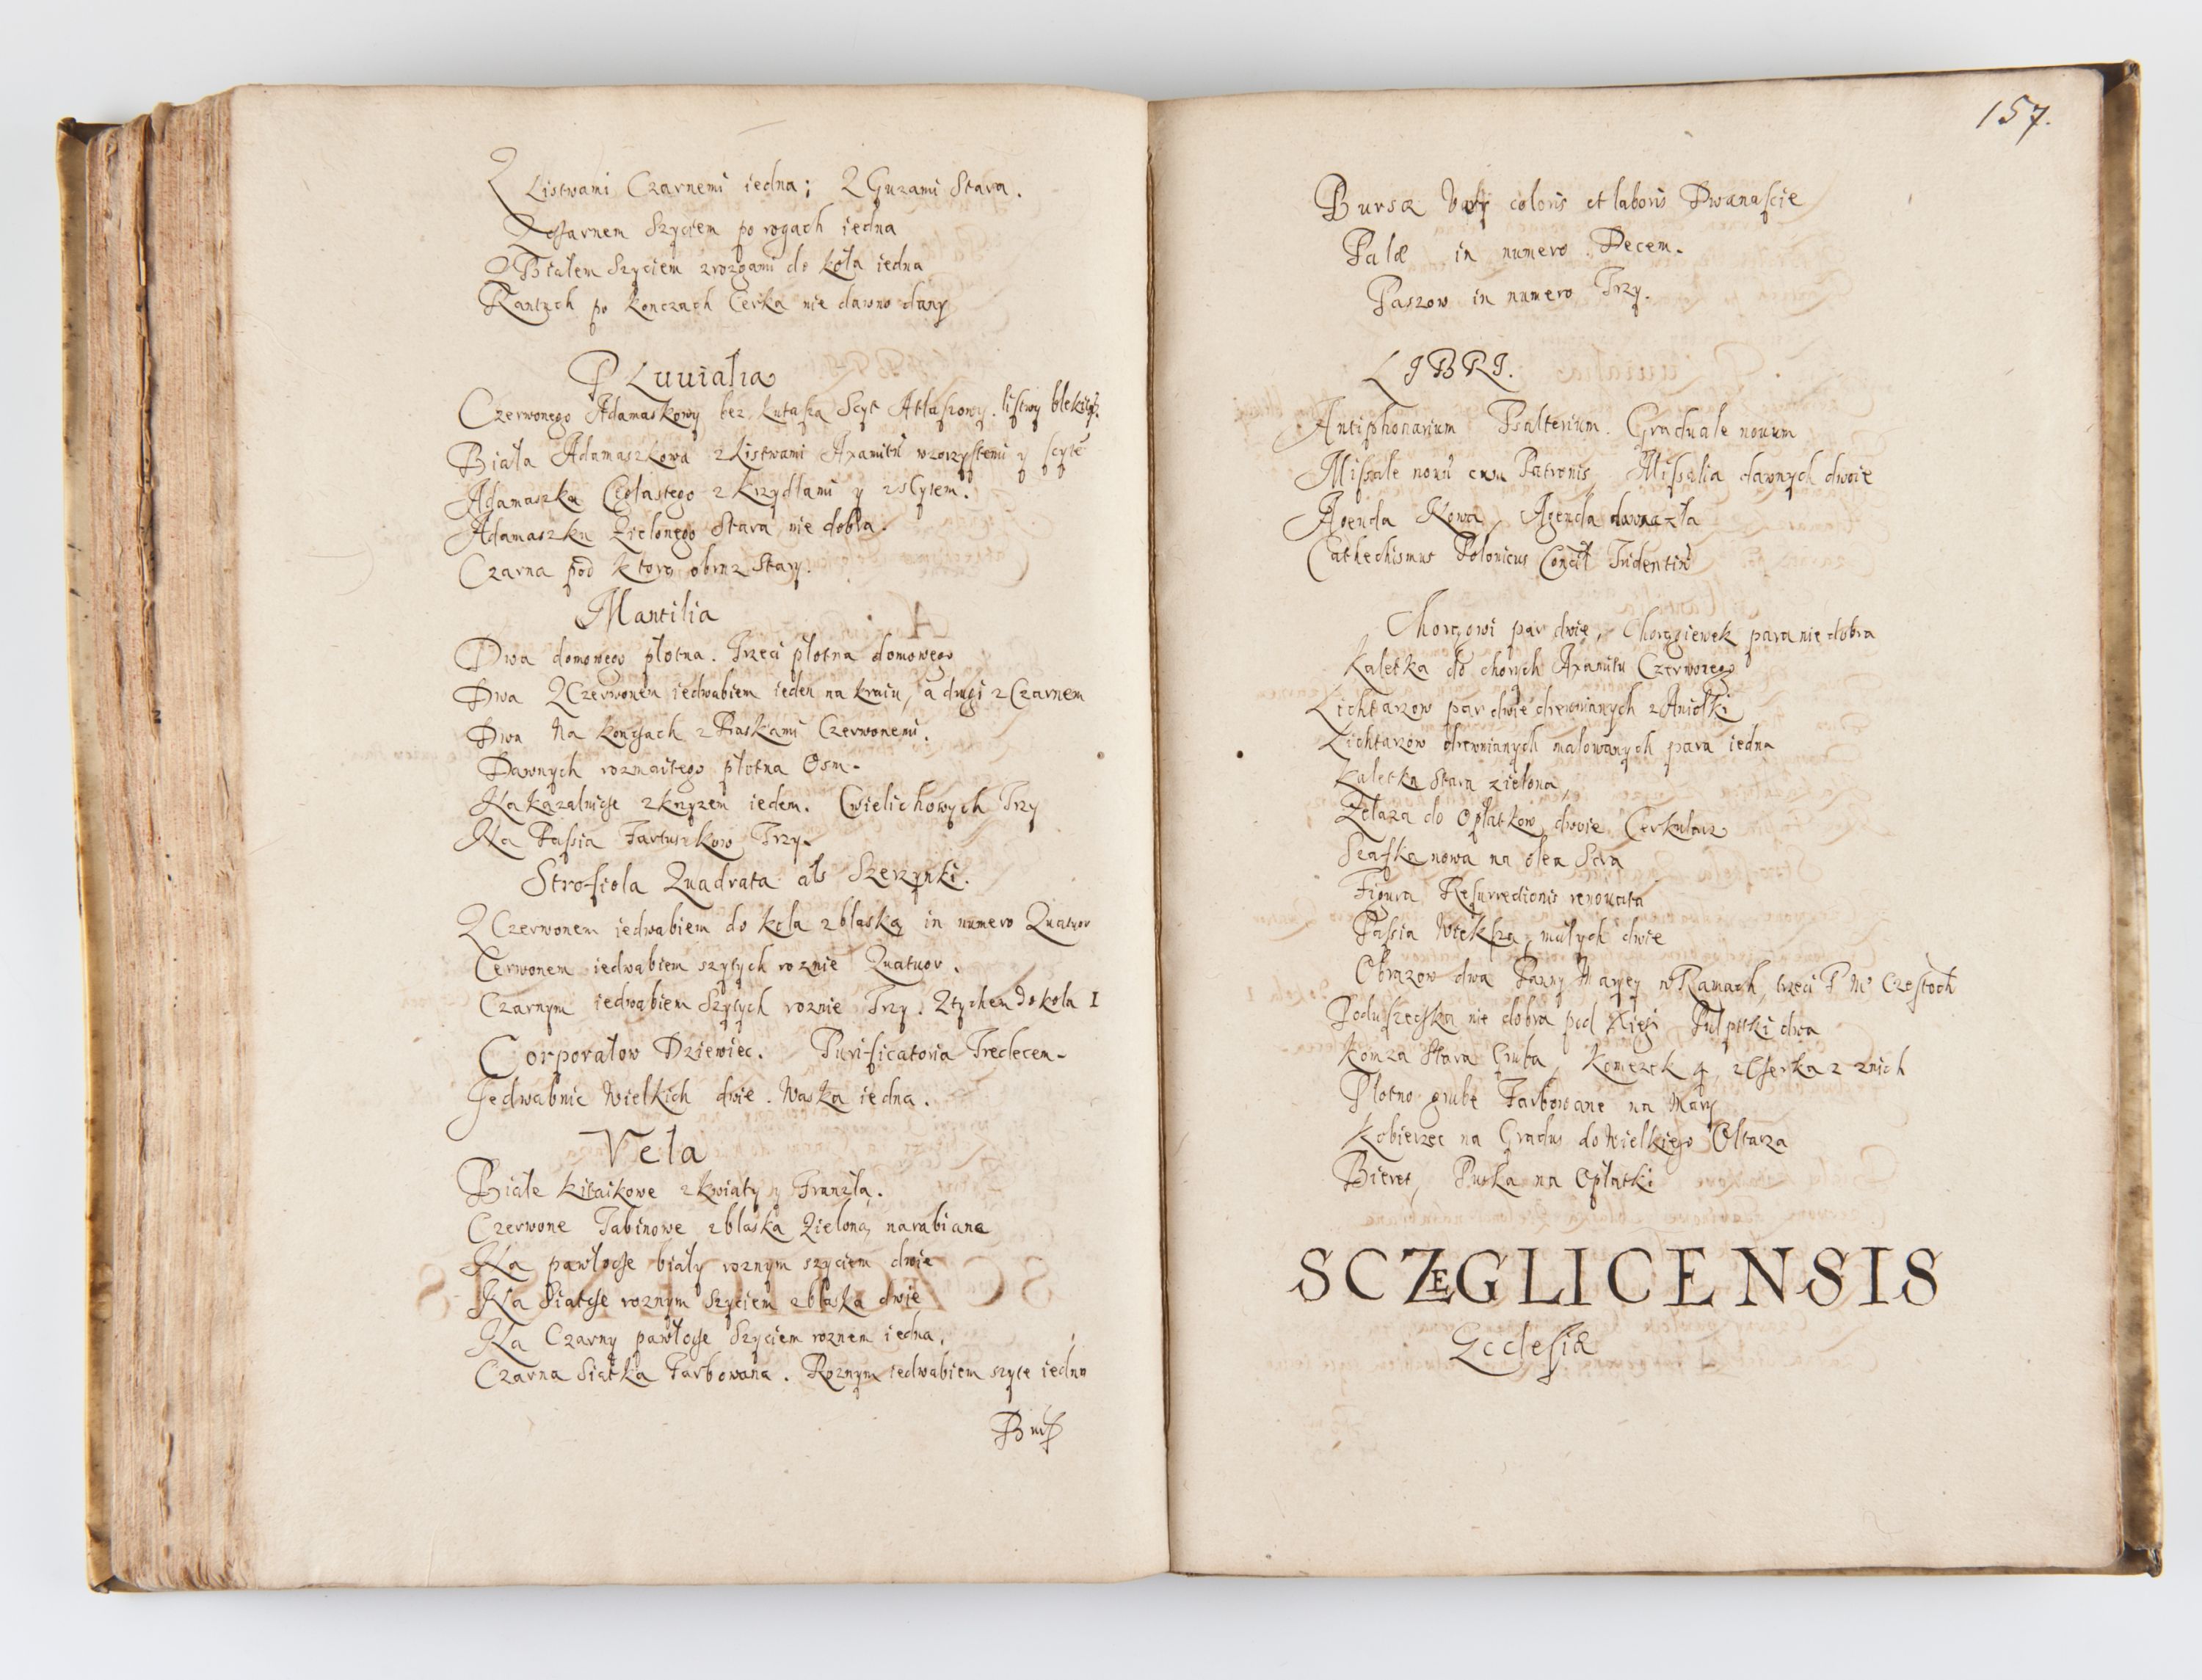 Z Listwami Czarnemi iedna; Z Guzami Stara.
Z Czarnem Szyciem po rogach iedna
Z Białem Szyciem z rozgami do koła iedna
Rantzch po konczach Cerka nie dawno dany
PLuuialia
Czerwonego Adamaskowy bez kutasa Scyt Atłasowy. listwy blekitne.
Biała Adamaszkowa z Listwami Axamitu wzorzystemi y scyte
Adamaszku Cielastego z krzydłami y z sCytem.
Adamaszku Zielonego Stara nie dobra.
Czarna pod ktorą obruz Stary.
Mantilia
Dwa domowego płotna. Trzeci płotna domowego
Dwa Z Czerwonem iedwabiem ieden na kraiu, a drugi z Czarnem
Dwa Na konczach z Paskami Czerwonemi.
Dawnych rozmaitego płotna Osm.
Na kazalnicze z krzyzem iedem. Cwielichowych Trzy
Na Passia Fartuszkow Trzy.
Strofiola Quadrata als Szerzynki.
Z Czerwonem iedwabiem do koła z blaską in numero Quatuor
Cerwonem iedwabiem szytych roznie Quatuor.
Czarnym iedwabiem Szytych roznie Trzy. Z tychen do koła I
Corporałow Dziewiec. Purificatoria Tredecem.
Jedwabnic Wielkich dwie. Waska iedna.
Vela
Białe kitaikowe z kwiaty y Franzlą.
Czerwone Tabinowe z blaska Zieloną narabiane
Na pawłocze biały roznym szyciem dwie
Na Siatcze roznym Szyciem z blaska dwie
Na Czarny pawłocze Szyciem roznem iedna.
Czarna Siatka Farbowana. Roznym iedwabiem szyte iedno
Burs
157.
Bursæ Varij coloris et laboris Dwanascie
Palæ in numero Decem.
Paszow in numero Trzy.
LIBRI.
Antiphonarium Psalterium. Graduale nouum
Missale nouū cum Patronis, Missalia dawnych dwoie
Agenda Nowa, Agenda dawna zła
Cathechismus Polonicus Concil Tridentin
Chorągwi par dwie, Chorągiewek para nie dobra
Kaletka do chorych Axamitu Czerwonego
Lichtarzow par dwie drewnianych z Aniołki
Lichtarzow drewnianych malowanych para iedna
Kaletka Stara zielona
Zelaza do Opłatkow dwoie Cerkularz
Seafka nowa na olea Scra
Figura Resurrectionis renouata
Passia Wieksza, małych dwie
Obrazow dwa Panny Maryey w Ramach, trzeci P M Czestoch
Poduszeczka nie dobra pod Xięgi Pulpitki dwa
Komza Stara Gruba, Komezek 4, z Czerka 2 z nich
Płotno grube Farbowane na Mary
Kobierzec na Gradus do Wielkiego Ołtarza
Bieret, Puska na Opłatki
SCZEGLICENSIS
Ecclesiæ